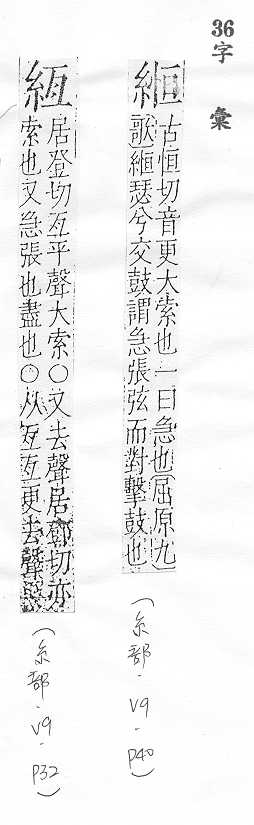 36
字彙
緪
古恒切音更大索也一曰急也屈原九
歌緪瑟兮交鼓謂急張弦而對擊鼓也
(糸部.V9.P40)
縆
居登切亙平聲大索○又去聲居鄧切亦
索也又急張也盡也○从亙亙更去聲
(糸部.V9.P32)